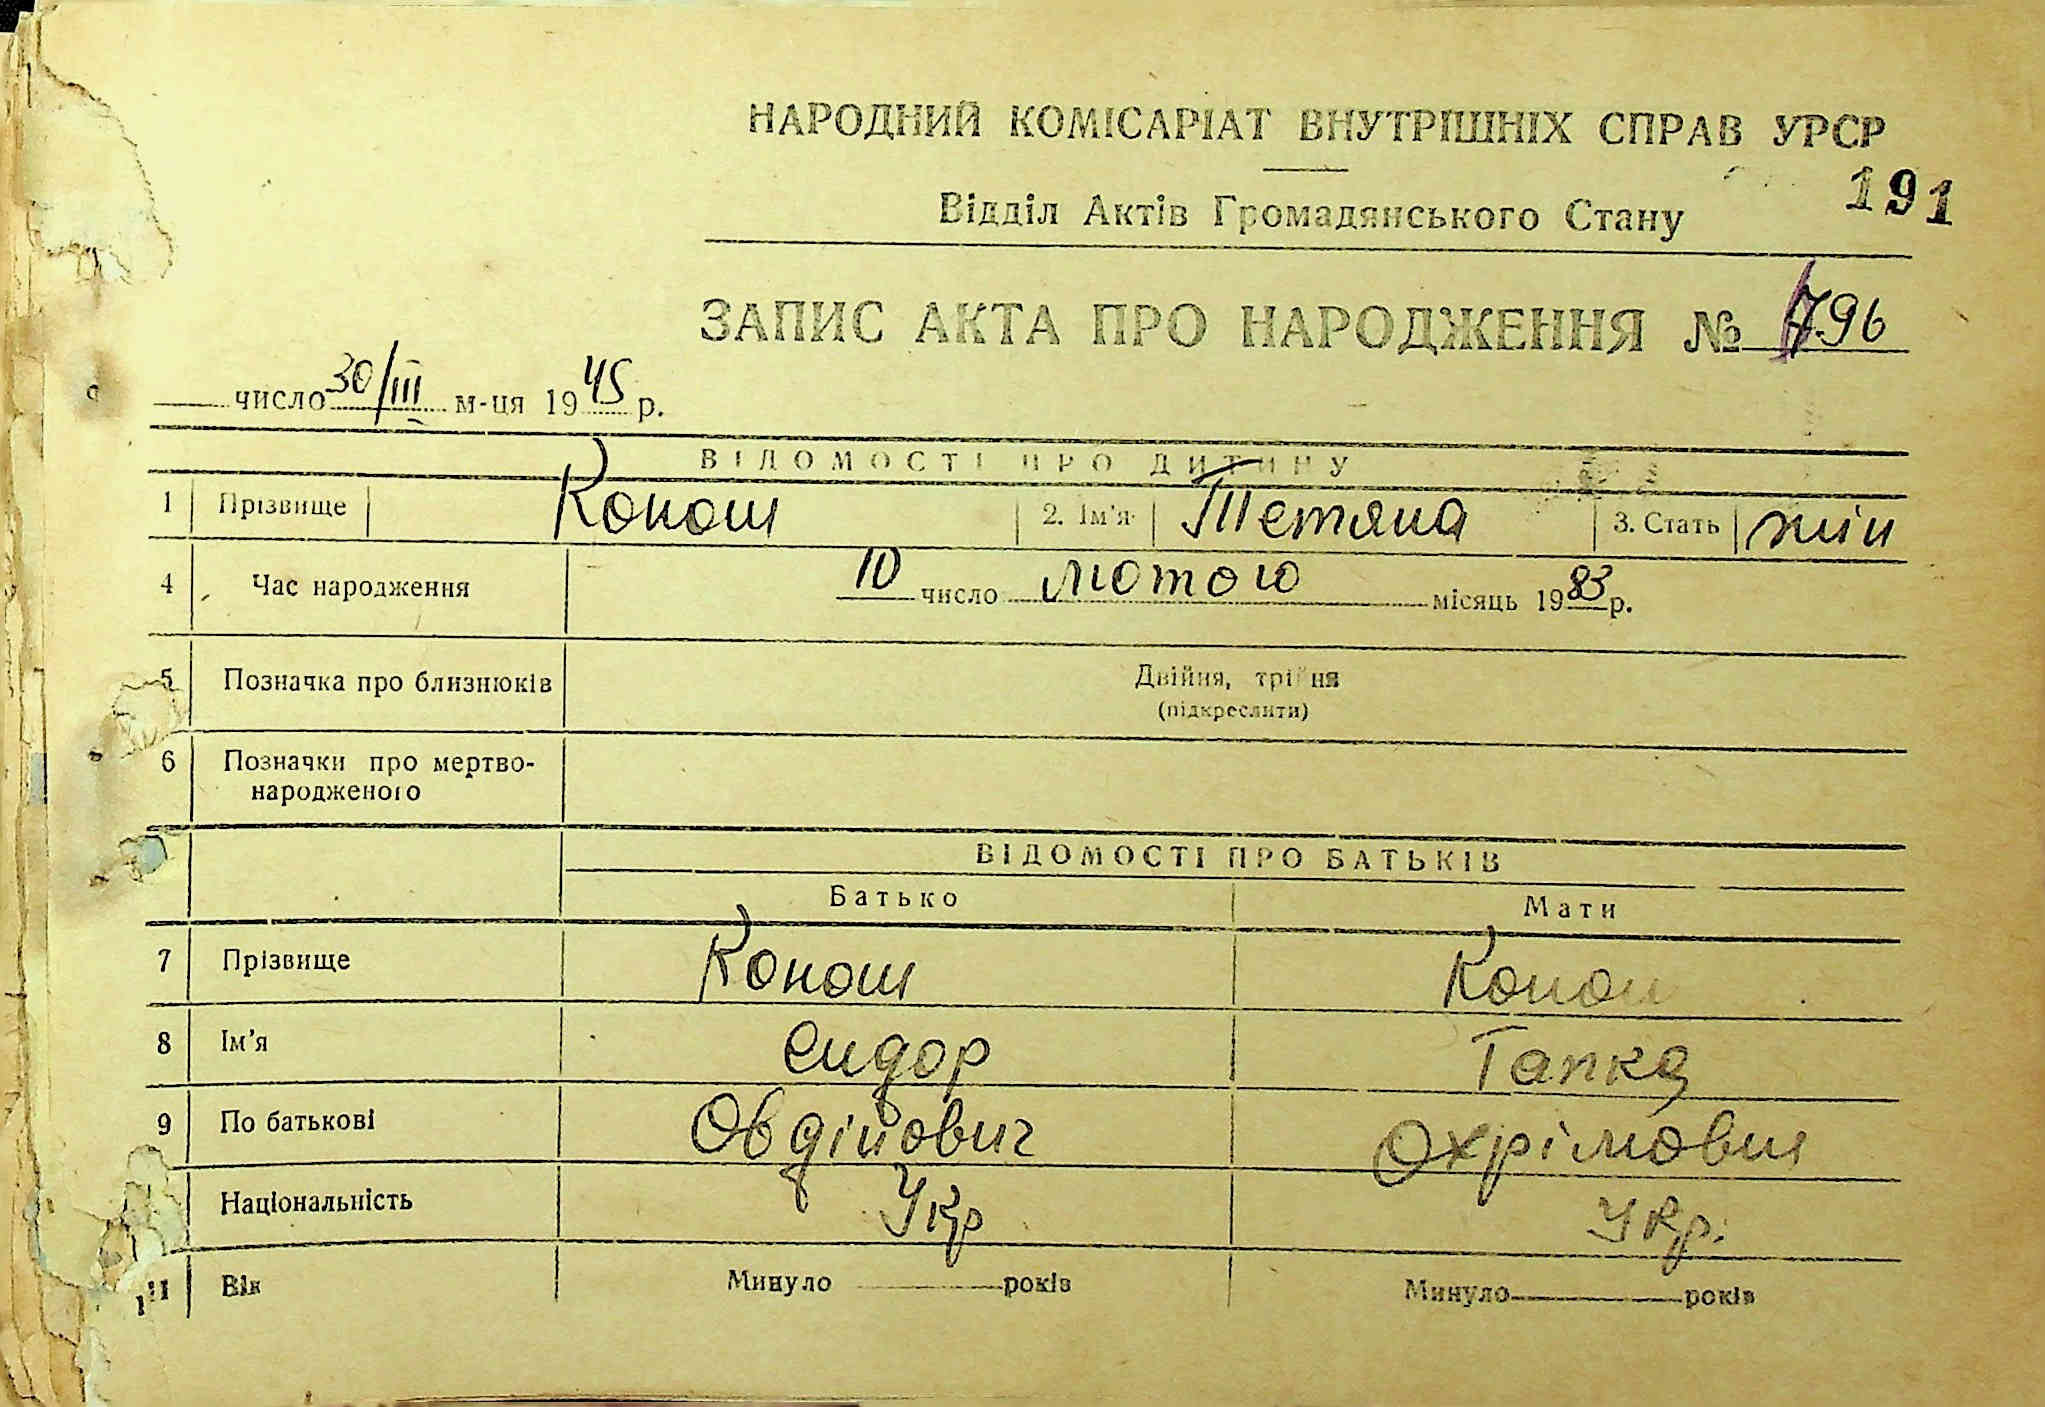 НАРОДНИЙ КОМІСАРІАТ ВНУТРІШНІХ СПРАВ УРСР
191
Відділ Актів Громадянського Стану
ЗАПИС АКТА ПРО НАРОДЖЕННЯ № 796
число 30/III м-ця 1945 р.
ВІДОМОСТІ ПРО ДИТИНУ
1 Прізвище Конош 2. Ім'я Тетяна 3. Стать жін
4 Час народження 10 число лютого місяць 19 р.
5 Позначка про близнюків Двійня, трійня
(підкреслити)
6 Позначки про мертво-
народженого
ВІДОМОСТІ ПРО БАТЬКІВ
Батько Мати
7 Прізвище Конош Конош
8 Ім'я Сидор Гапка
9 По батькові Овдійович Охрімовн
Національність Укр Укр.
11 Вік Минуло років Минуло років